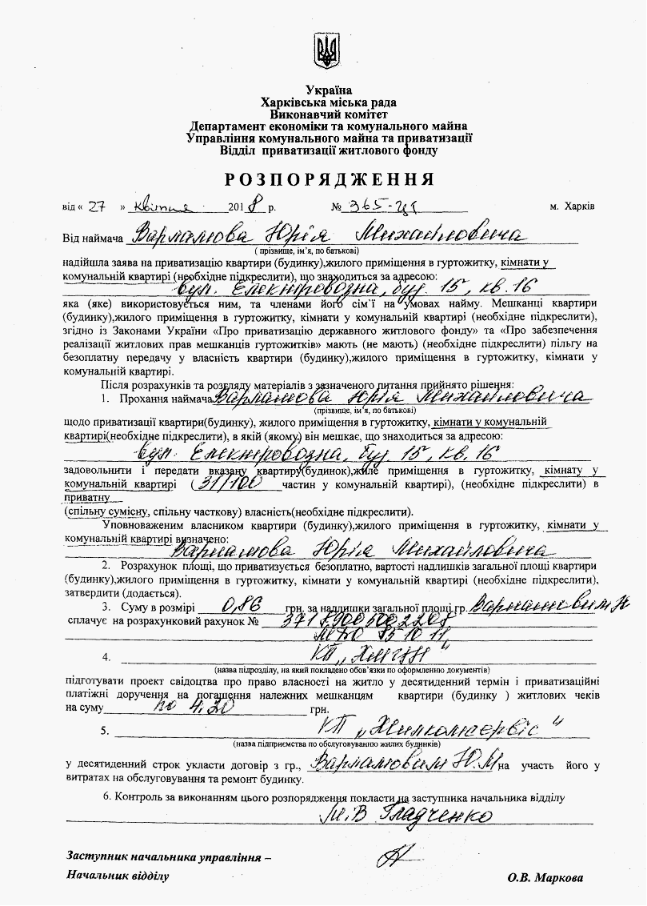 Україна
Харківська міська рада
Виконавчий комітет
Департамент економіки та комунального майна
Управління комунального майна та приватизації
Відділ приватизації житлового фонду
РОЗПОРЯДЖЕННЯ
від « 27 » квітня 2018 р. № 365-Ц1 м. Харків
Від наймача Варламова Юрія Михайловича
( прізвище, ім'я, по батькові)
надійшла заява на приватизацію квартири (будинку),жилого приміщення в гуртожитку, кімнати у
комунальній квартирі (необхідне підкреслити), що знаходиться за адресою:
вул. Електровозна, буд. 15, кв. 16
яка (яке) використовується ним, та членами його сім'ї на умовах найму. Мешканці квартири
(будинку),жилого приміщення в гуртожитку, кімнати у комунальній квартирі (необхідне підкреслити),
згідно із Законами України «Про приватизацію державного житлового фонду» та «Про забезпечення
реалізації житлових прав мешканців гуртожитків» мають (не мають) (необхідне підкреслити) пільгу на
безоплатну передачу у власність квартири (будинку),жилого приміщення в гуртожитку, кімнати у
комунальній квартирі.
Після розрахунків та розгляду матеріалів з зазначеного питання прийнято рішення:
1. Прохання наймача Варламова Юрія Михайловича
(прізвище, ім'я, по батькові)
щодо приватизації квартири(будинку), жилого приміщення в гуртожитку, кімнати у комунальній
квартирі(необхідне підкреслити), в якій (якому) він мешкає, що знаходиться за адресою:
вул. Електровозна, буд. 15, кв. 16
задовольнити і передати вказану квартиру(будинок),жиле приміщення в гуртожитку, кімнату у
комунальній квартирі ( 31/100 частин у комунальній квартирі), (необхідне підкреслити) в
приватну
(спільну сумісну, спільну часткову) власність(необхідне підкреслити).
Уповноваженим власником квартири (будинку),жилого приміщення в гуртожитку, кімнати у
комунальній квартирі визначено:
Варламова Юрія Михайловича
2. Розрахунок площі, що приватизується безоплатно, вартості надлишків загальної площі квартири
(будинку),жилого приміщення в гуртожитку, кімнати у комунальній квартирі (необхідне підкреслити),
затвердити (додається).
3. Суму в розмірі 0,86 грн. за надлишки загальної площі гр. Варламовим Ю
сплачує на розрахунковий рахунок №
4. КП
(назва підрозділу, на який покладено обов'язки по оформленню документів)
підготувати проект свідоцтва про право власності на житло у десятиденний термін і приватизаційні
платіжні доручення на погашення належних мешканцям квартири (будинку ) житлових чеків
на суму по 4.20 грн.
5. КП „Жилкомсервіс"
(назва підприємства по обслуговуванню жилих будинків)
у десятиденний строк укласти договір з гр., Варламовим Ю.М на участь його у
витратах на обслуговування та ремонт будинку.
6. Контроль за виконанням цього розпорядження покласти на заступника начальника відділу
М.В Гладченко
Заступник начальника управління –
Начальник відділу О.В. Маркова